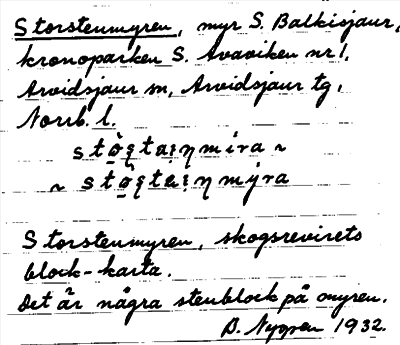 Storstenmyren, myr S. Balkisjaur,
kronoparken S. Avaviken nr 1,
Arvidsjaur sn, Arvidsjaur tg,
Norrb. l.
Storstenmyren, skogsrevirets
block-karta.
Det är några stenblock på myren.
B. Nygren 1932.